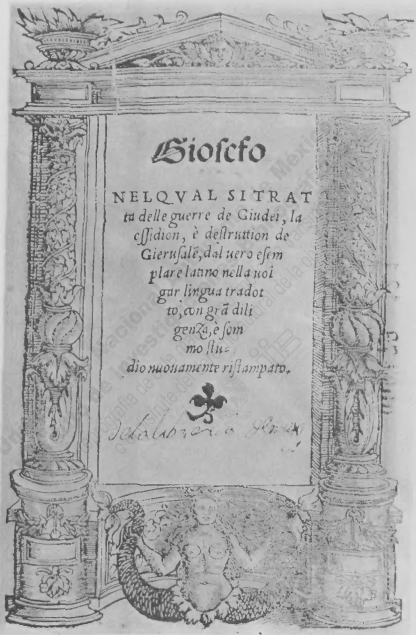 Gioſefo
NELQVAL SI TRAT
ta delle guerre de Giudei, la
eſſidion, è deſtruttion de
Gieruſalē, dal uero eſem
plare latino nella uol
gar lingua tradot
to, con grā dili
genza, e ſom
mo ſtu-
dio nuouamente riſtampato.